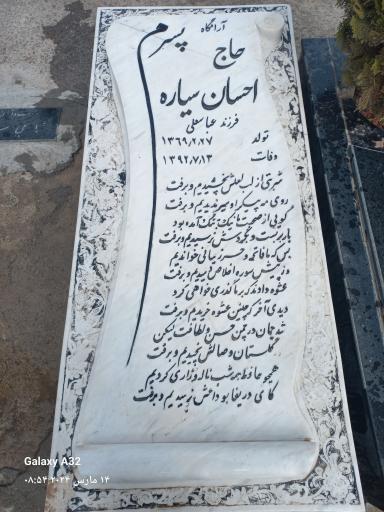 آرامگاه
پسرم
حاج
احسان سیاره
فرزند عباسعلی
تولد ۱۳۶۹٫۲٫۲۷
وفات ۱۳۹۲٫۷٫۱۳
شربتی از لب لعلش نچشیدیم و برفت
روی مه پیکر او سیر ندیدیم و برفت
گویی از صحبت ما نیک به تنگ آمده بود
بار بربست و به گردش نرسیدیم و برفت
بس که ما فاتحه و حرز یمانی خواندیم
وز پیش سوره اخلاص دمیدیم و برفت
عشوه دادند که بر ما گذری خواهی کرد
دیدی آخر که چنین عشوه خریدیم و برفت
شد چمان در چمن حسن و لطافت لیکن
در گلستان وصالش نچمیدیم و برفت
همچو حافظ همه شب ناله و زاری کردیم
کای دریغا به وداعش نرسیدیم و برفت
Galaxy A32
۱۴ مارس ۲۰۲۴ ۰۸:۵۴